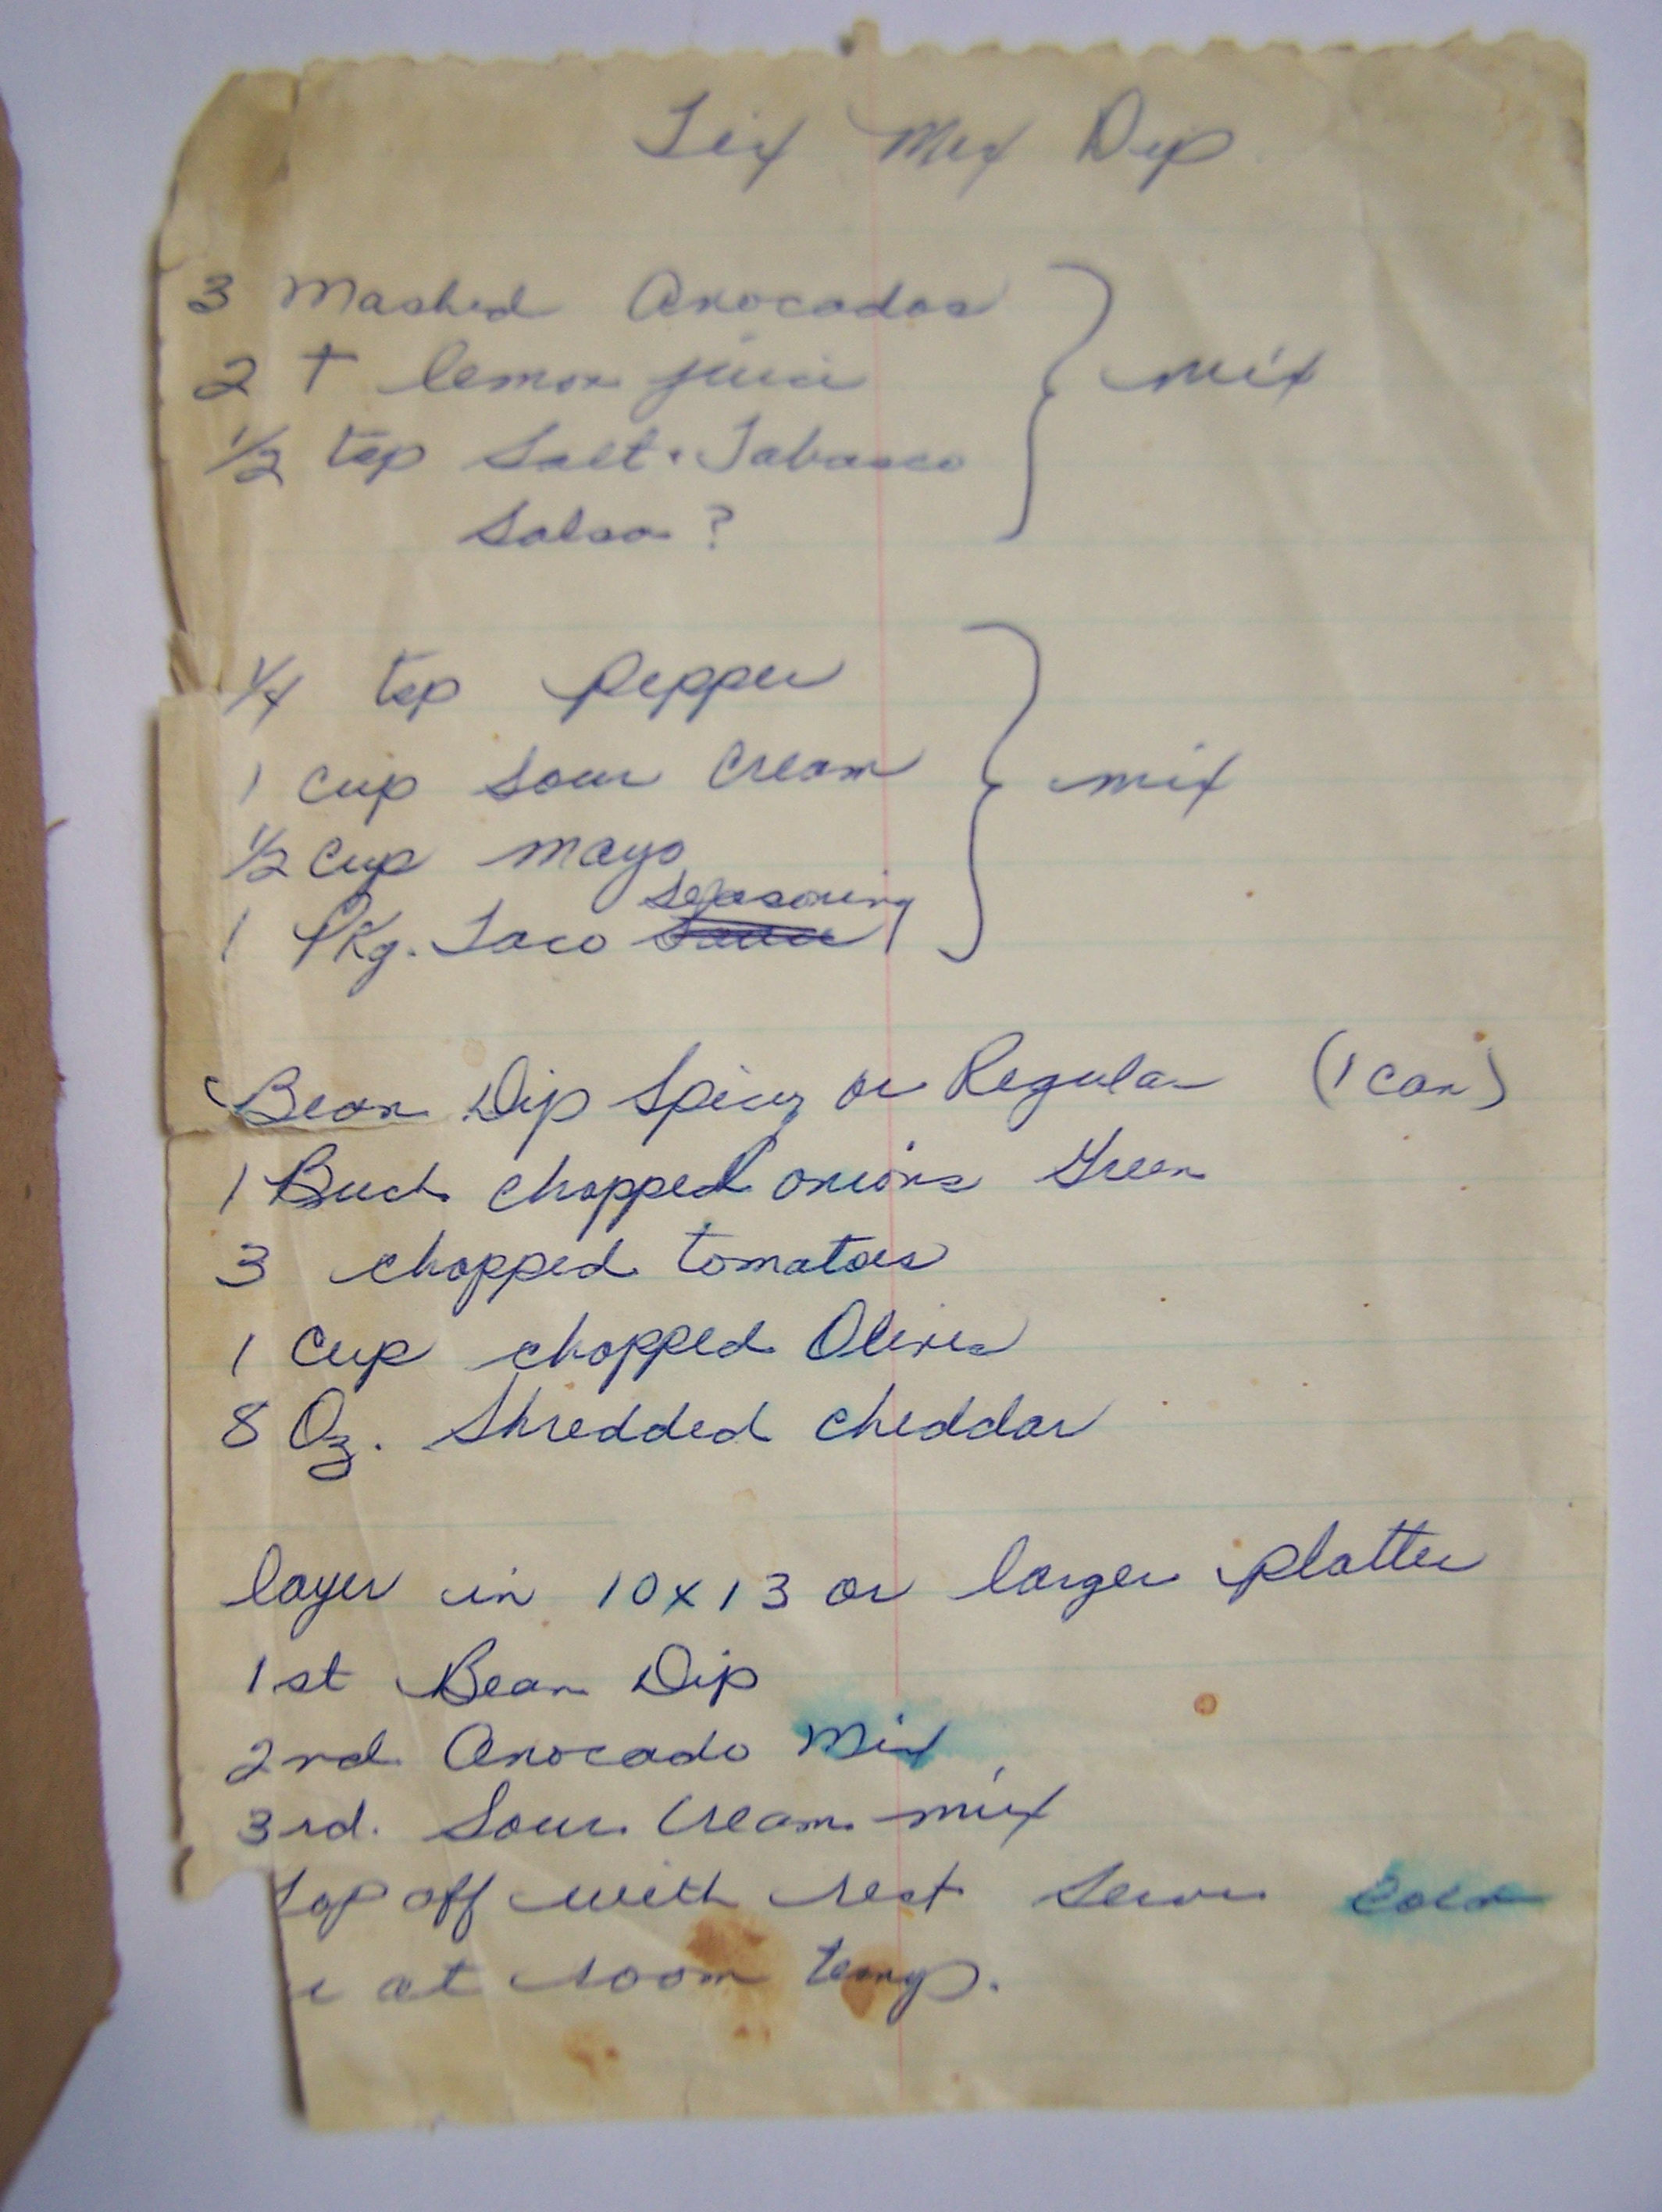 Tex Mex Dip
3 Mashed Avocados
2 T lemon juice } mix
1/2 tsp Salt + Tabasco
Salsa?
1/4 tsp pepper
1 cup sour cream } mix
1/2 cup mayo
seasoning
1 Pkg. Taco
Bean Dip Spicy or Regular (1 can)
1 Buch chopped onions Green
3 chopped tomatoes
1 Cup chopped Olives
8 Oz. Shredded cheddar
layer in 10x13 or larger platter
1st Bean Dip
2nd Avocado Mix
3rd. Sour Cream mix
Top off with rest Serve Cold
at room temp.